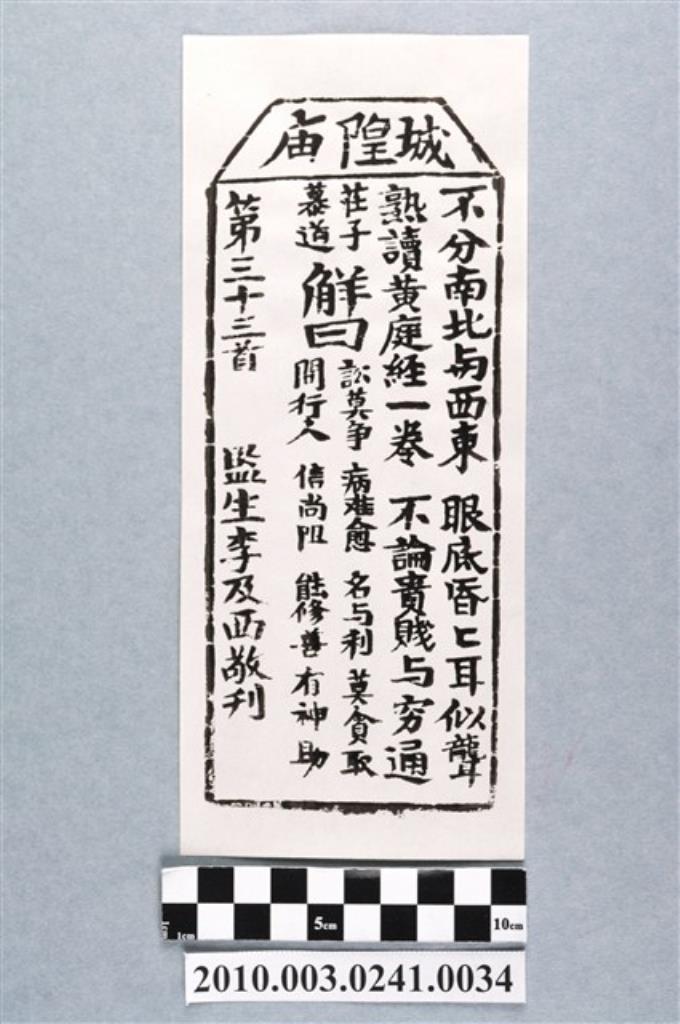 城隍庙
不分南北与西東　眼底昏匕耳似聾
熟讀黄庭経一卷　不論貴賤与穷通
荘子慕道
觧曰
訟莫争　病难愈　名与利　莫貪取
開行人　信尚阻　能修善　有神助
第三十三首　監生李及西敬刋
5cm
10cm
1cm
2010.003.0241.0034